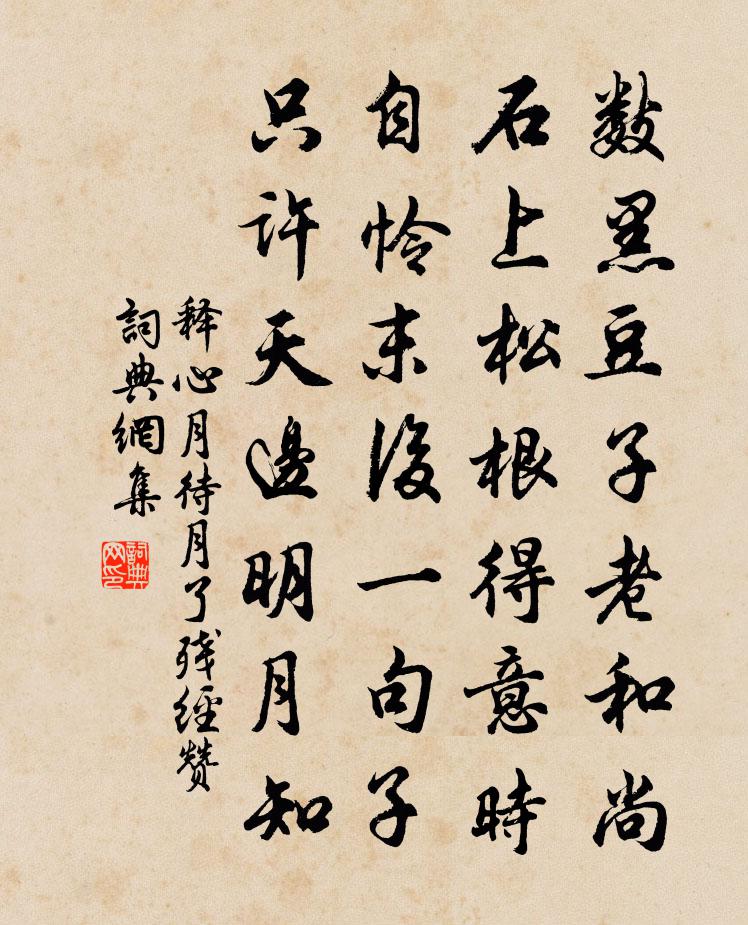 数黑豆子老和尚
石上松根得意時
自怜末後一句子
只許天邊明月知
释心月待月了残經赞
詞典網集
詞典網印